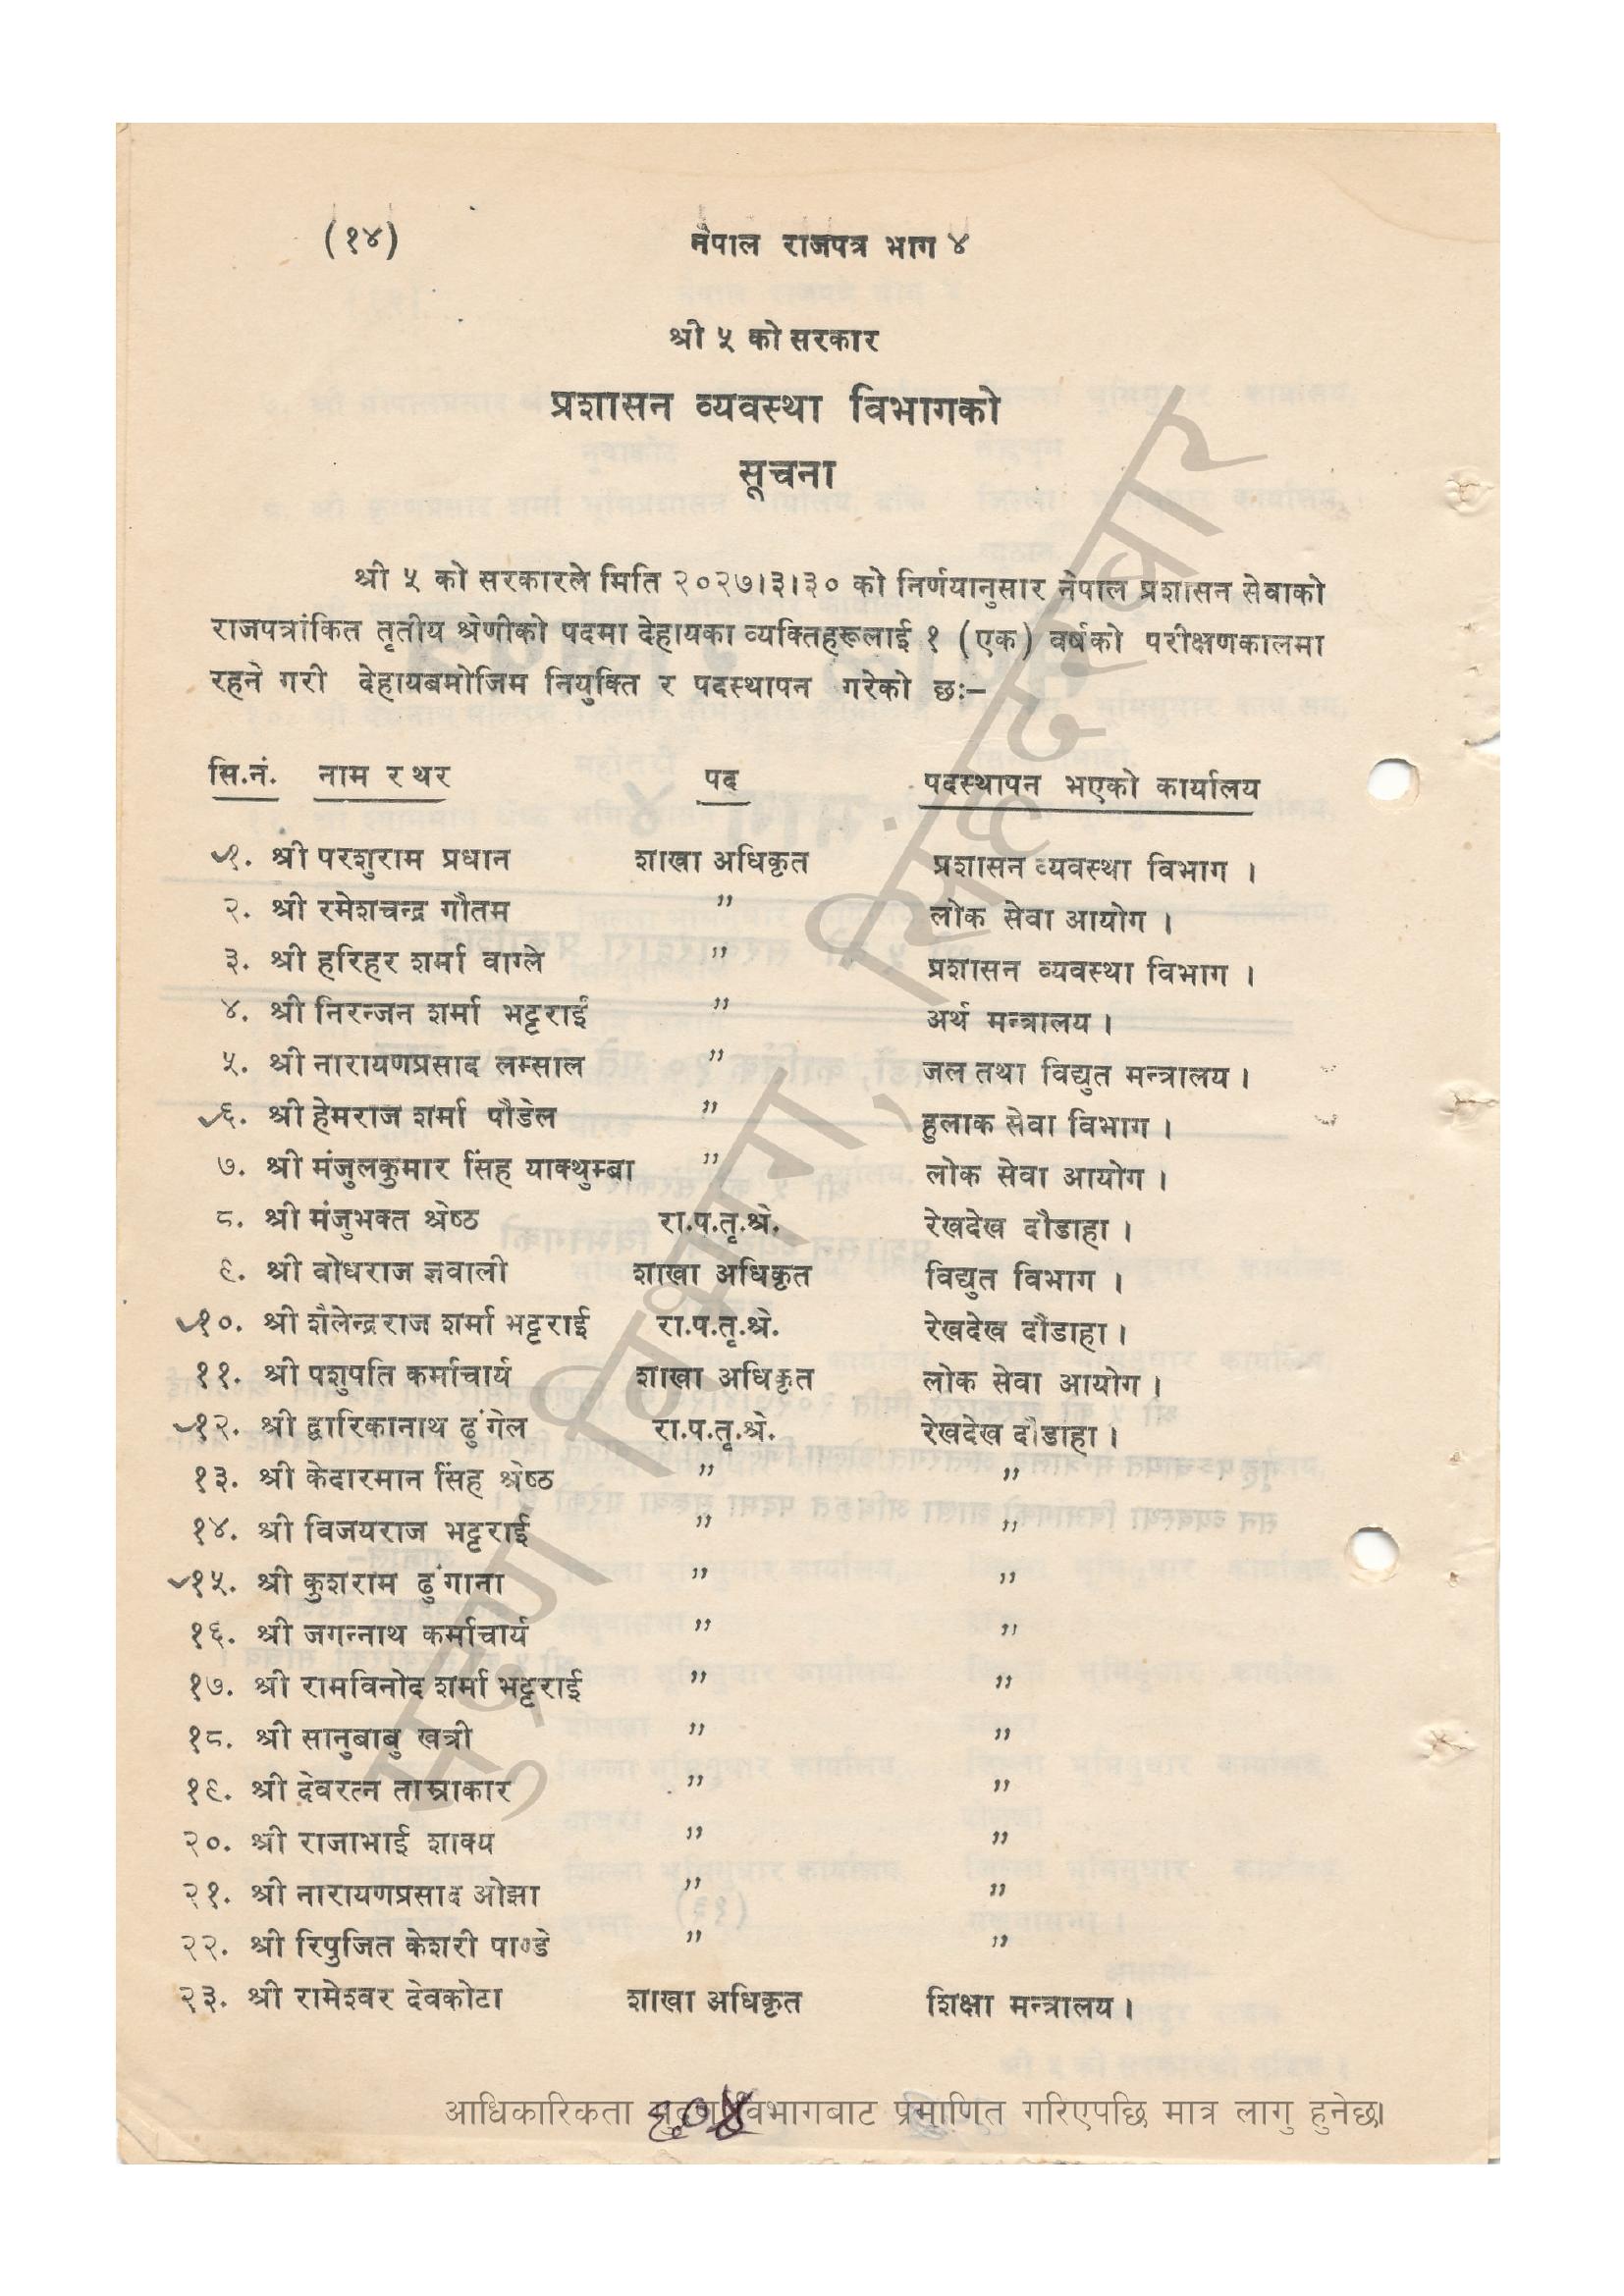 (१४) नेपाल राजपत्र भाग ४
श्री ५ को सरकार
प्रशासन व्यवस्था विभागको
सूचना
श्री ५ को सरकारले मिति २०२७।३।३० को निर्णयानुसार नेपाल प्रशासन सेवाको
राजपत्रांकित तृतीय श्रेणीको पदमा देहायका व्यक्तिहरूलाई १ (एक) वर्षको परीक्षणकालमा
रहने गरी देहायबमोजिम नियुक्ति र पदस्थापन गरेको छः–
सि.नं. नाम र थर पद पदस्थापन भएको कार्यालय
१. श्री परशुराम प्रधान शाखा अधिकृत प्रशासन व्यवस्था विभाग ।
२. श्री रमेशचन्द्र गौतम ” लोक सेवा आयोग ।
३. श्री हरिहर शर्मा वाग्ले ” प्रशासन व्यवस्था विभाग ।
४. श्री निरन्जन शर्मा भट्टराई ” अर्थ मन्त्रालय ।
५. श्री नारायणप्रसाद लम्साल ” जल तथा विद्युत मन्त्रालय ।
६. श्री हेमराज शर्मा पौडेल ” हुलाक सेवा विभाग ।
७. श्री मंजुलकुमार सिंह याक्थुम्बा ” लोक सेवा आयोग ।
८. श्री मंजुभक्त श्रेष्ठ रा.प.तृ.श्रे. रेखदेख दौडाहा ।
९. श्री वोधराज ज्ञवाली शाखा अधिकृत विद्युत विभाग ।
१०. श्री शैलेन्द्रराज शर्मा भट्टराई रा.प.तृ.श्रे. रेखदेख दौडाहा ।
११. श्री पशुपति कर्माचार्य शाखा अधिकृत लोक सेवा आयोग ।
१२. श्री द्वारिकानाथ ढुंगेल रा.प.तृ.श्रे. रेखदेख दौडाहा ।
१३. श्री केदारमान सिंह श्रेष्ठ ” ”
१४. श्री विजयराज भट्टराई ” ”
१५. श्री कुशराम ढुंगाना ” ”
१६. श्री जगन्नाथ कर्माचार्य ” ”
१७. श्री रामविनोद शर्मा भट्टराई ” ”
१८. श्री सानुबाबु खत्री ” ”
१९. श्री देवरत्न ताम्राकार ” ”
२०. श्री राजाभाई शाक्य ” ”
२१. श्री नारायणप्रसाद ओझा ” ”
२२. श्री रिपुजित केशरी पाण्डे ” ”
२३. श्री रामेश्वर देवकोटा शाखा अधिकृत शिक्षा मन्त्रालय ।
मुद्रण विभाग, सिंहदरबार
आधिकारिकता मुद्रण विभागबाट प्रमाणित गरिएपछि मात्र लागु हुनेछ।